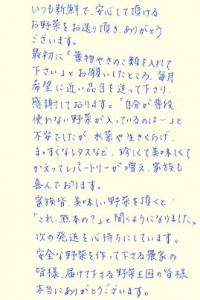 いつも新鮮で、安心して頂ける
お野菜をお送り頂き、ありがとう
ございます。
最初に「葉物やきのこ類を入れて
下さい」とお願いしたところ、毎月
希望に近い品目を送って下さり、
感謝しております。「自分が普段
使わない野菜が入っているのは〜」と
不安でしたが、水菜や生きくらげ、
まっすぐなレタスなど、珍しくて美味しくて
かえってレパートリーが増え、家族も
喜んでおります。
家族皆、美味しい野菜を頂くと
「これ、熊本の?」と聞くようになりました。
次の発送を心待ちにしています。
安全な野菜を作って下さる農家の
皆様、届けて下さる野菜王国の皆様
本当にありがとうございます。